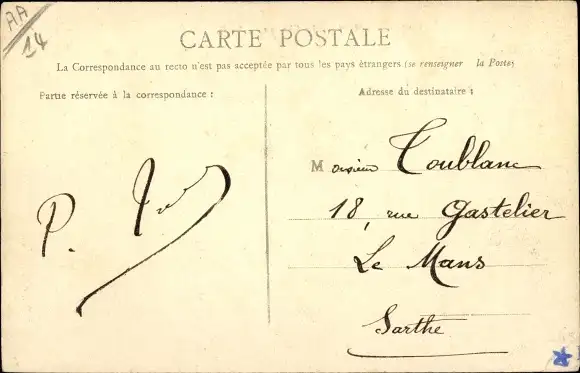 AA
14
CARTE POSTALE
La Correspondance au recto n'est pas acceptée par tous les pays étrangers (se renseigner la Poste)
Partie réservée à la correspondance :
P.
Adresse du destinataire :
Monsieur Toublanc
18, rue Gastelier
Le Mans
Sarthe